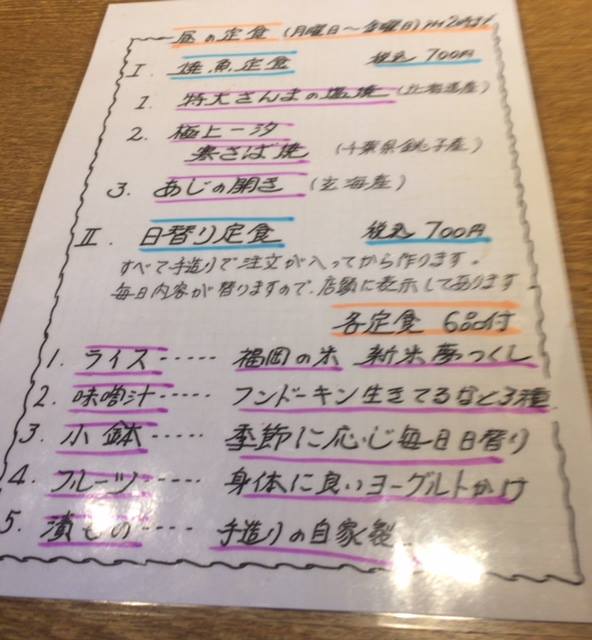 昼の定食 (月曜日〜金曜日) PM2時迄
I. 焼魚定食 税込 700円
1. 特大さんまの塩焼 (北海道産)
2. 極上一汐
寒さば焼 (千葉県銚子産)
3. あじの開き (玄海産)
II. 日替り定食 税込 700円
すべて手造りで注文が入ってから作ります。
毎日内容が替りますので、店頭に表示してあります
各定食 6品付
1. ライス ..... 福岡の米 新米 夢つくし
2. 味噌汁 ..... フンドーキン生きてるなど3種
3. 小鉢 ..... 季節に応じ毎日日替り
4. フルーツ ..... 身体に良いヨーグルトかけ
5. 漬もの ..... 手造りの自家製